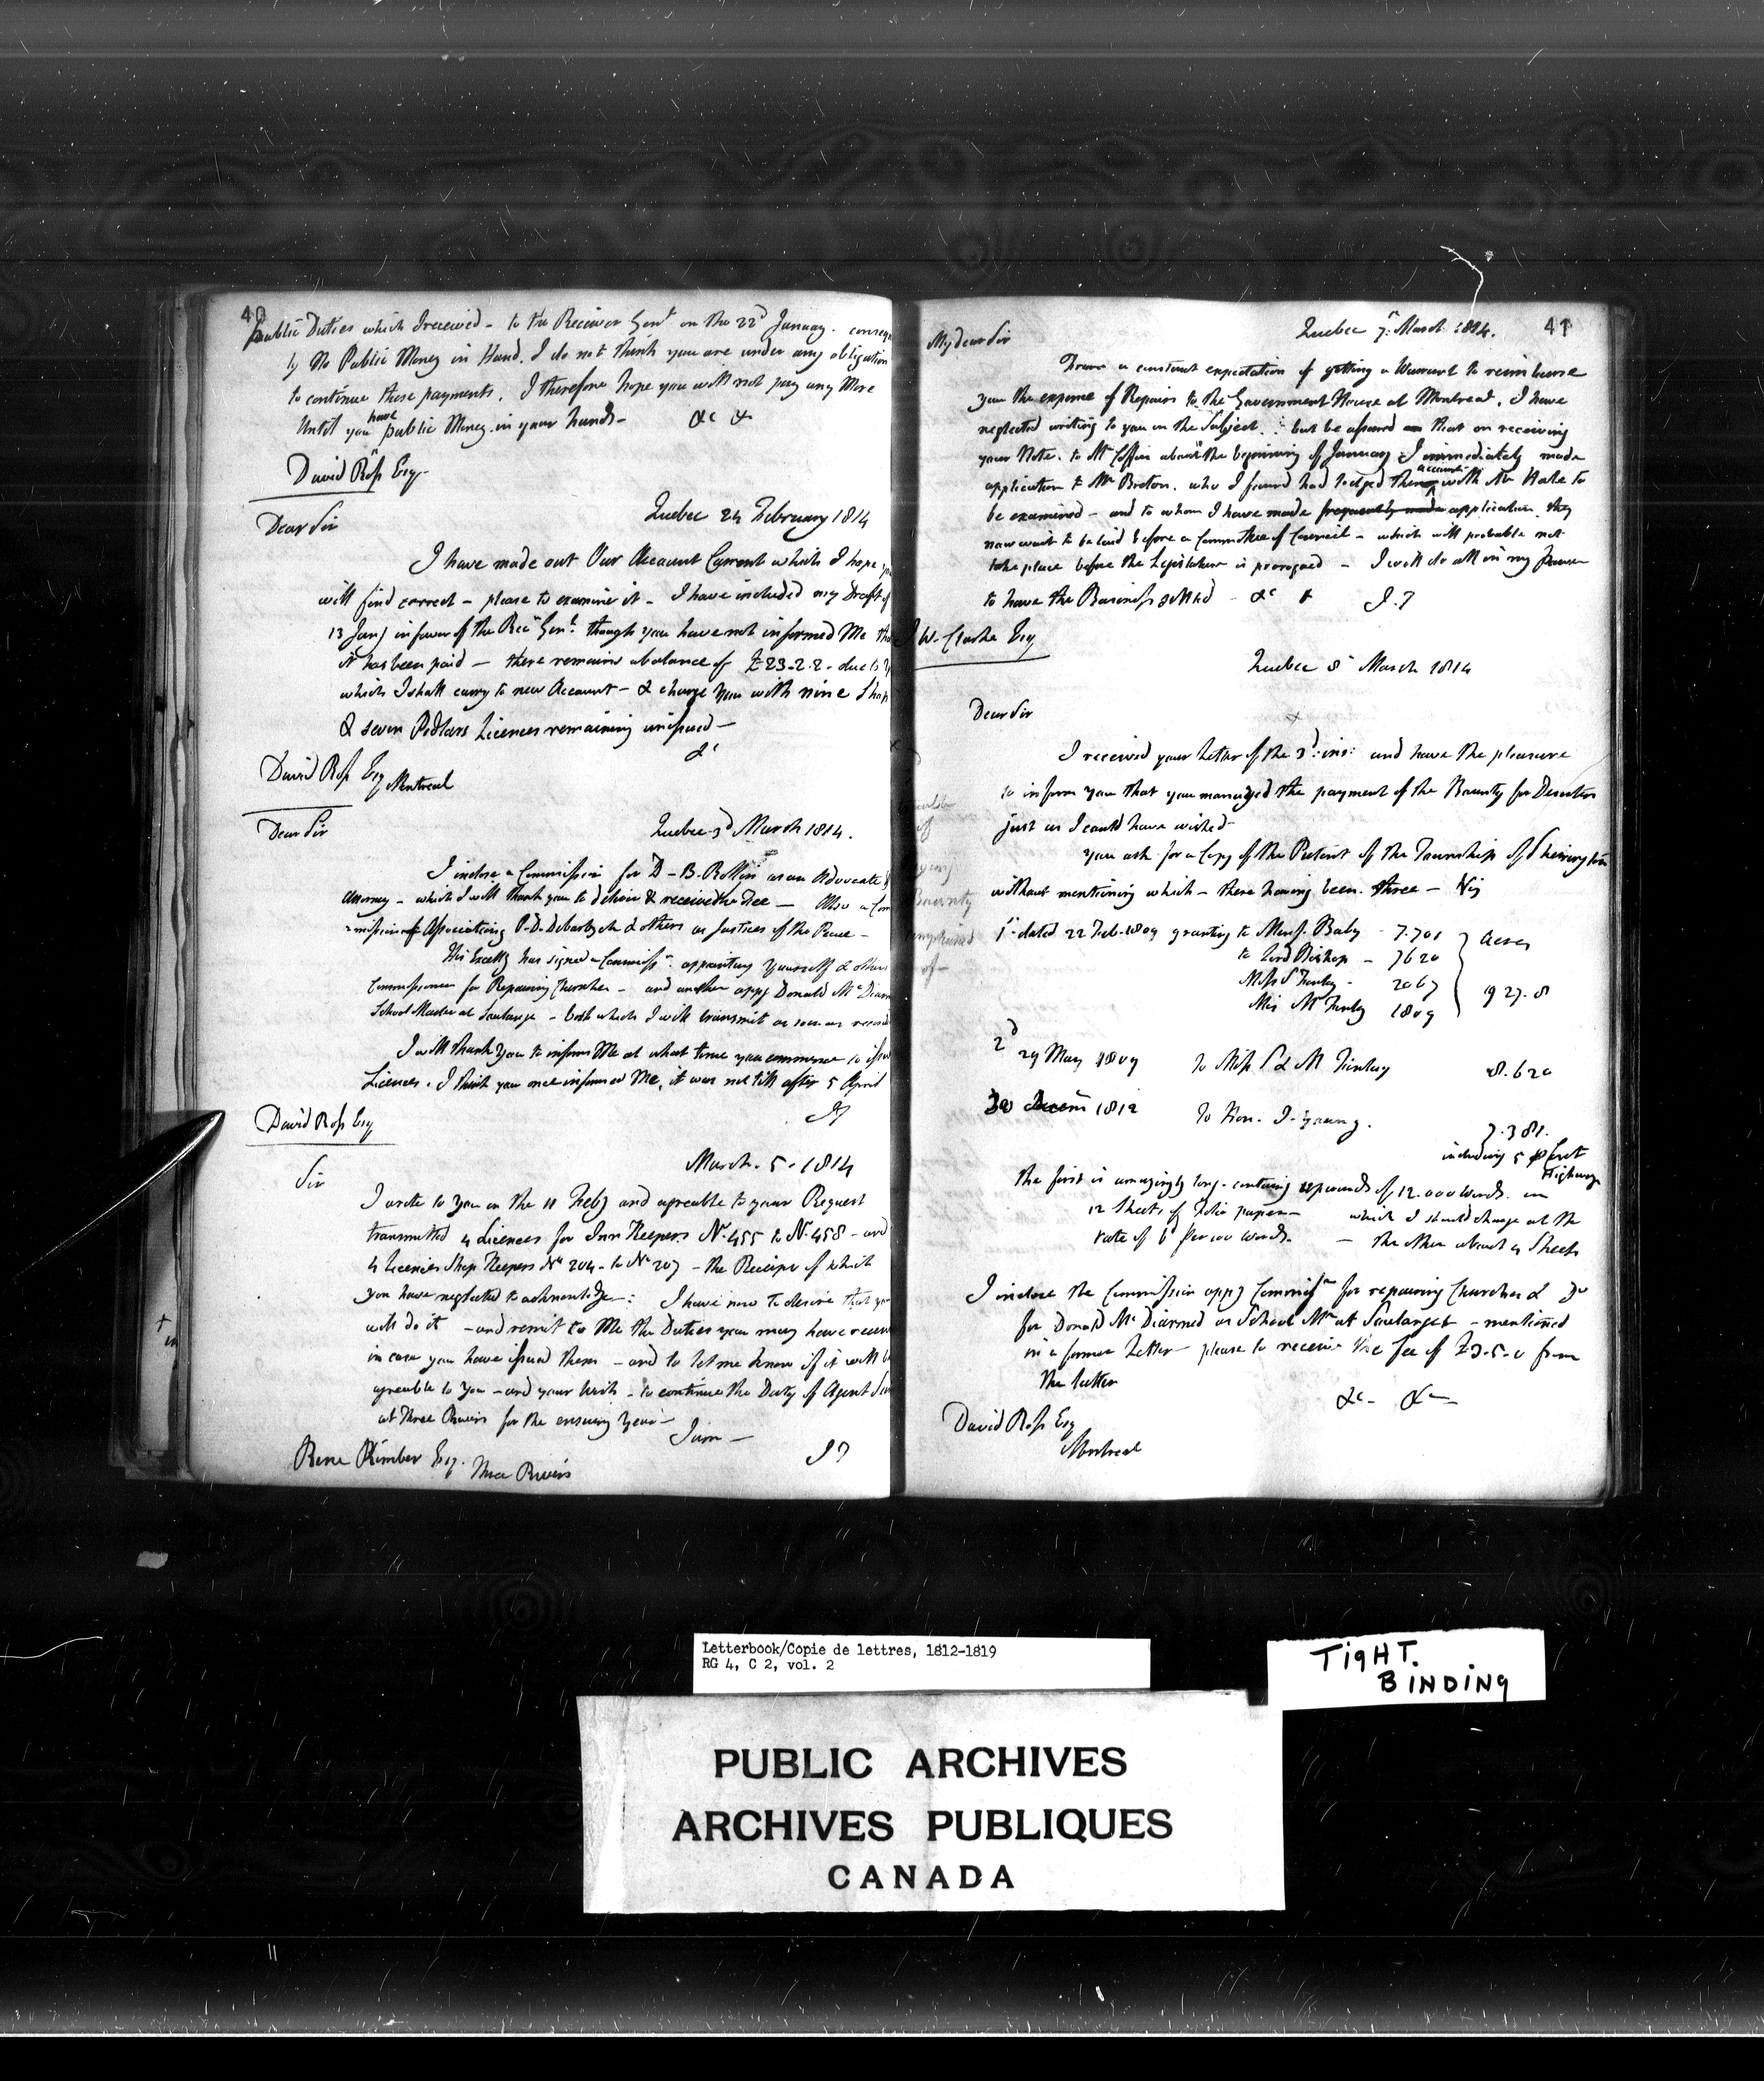 40
public Duties which I received - to the Receiver Genl on the 22d January. conseq
ly No Public Money in Hand. I do not think you are under any obligation
to continue these payments. I therefore hope you will not pay any More
Until you have public Money in your hands - &c &
David Ross Esq
Quebec 24 February 1814
Dear Sir
I have made out Our Account Current which I hope yo
will find correct - please to examine it - I have included my Draft of
13 Jany in favor of the Recr Genl. though you have not informed Me tha
it has been paid - there remains a balance of £23-2.2 - due to y
which I shall carry to new Account - & charge you with nine Shop
& seven Pedlars Licences remaining unissued -
&c
David Ross Esq Montreal
Quebec 3d March 1814.
Dear Sir
I inclose a Commission for D - B. Rollin as an Advocate &
Attorney - which I will thank you to deliver & receive the Fee - Also a Com
mission Associating P. D. Debartzch & others as Justices of the Peace -
His Excelly has signed a Commissn. appointing Yourself & others
Commissioners for Repairing Churches - and another appg Donald McDiarm
School Master at Soulange - both which I will transmit as soon as record
I will thank You to inform Me at what time you commence to issue
Licences. I think you once informed Me, it was not till after 5 April
JT
David Ross Esq
March. 5. 1814
Sir
I wrote to You on the 11 Feby and agreable to your Request
transmitted 4 Licences for Inn Keepers No. 455 to No. 458 - and
4 Licences Shop Keepers No 204 - to No 207 - the Receipt of which
you have neglected to acknowledge: I have now to desire that yo
will do it - and remit to Me the Duties you may have receiv
in case you have issued them - and to let me know if it will b
agreable to You - and your Wish - to continue the Duty of Agent
at Three Rivers for the ensuing Year -
I am -
JT
Rene Kimber Esq. Three Rivers
41
Quebec 7. March 1814.
My dear Sir
From a constant expectation of getting a Warrant to reimburse
you the expense of Repairs to the Government House at Montreal. I have
neglected writing to you on the Subject. but be assured that on receiving
your Note. to Mr Coffin about the beginning of January I immediately made
application to Mr Breton. who I found had lodged the account with Mr Hale to
be examined - and to whom I have made frequently made application. they
now wait to be laid before a Committee of Council - which will probable not
take place before the Legislature is prorogued - I will do all in my Power
to have the Business settled - &c & J. T
J W. Clarke Esq
Quebec 8 March 1814
Dear Sir
I received your Letter of the 3d. ins: and have the pleasure
to inform you that you managed the payment of the Bounty for Deserters
just as I could have wished -
you ask for a Copy of the Patent of the Township of Sherrington
without mentioning which - there having been three - Viz
1st dated 22 Feb. 1809 granting to Mess. Baby - 7.701 Acres
to Lord Bishop - 7620
Miss S Finlay - 2067
Miss M Finlay 1809 1927.8
2d 29 May 1809 To Miss S & M Finlay 8.620
3d 1812 To Hon. J. Young. 7.381.
including 5 pr Cent
Highways
the first is amazingly long. containg upwards of 12.000 Words. in
12 Sheets of Folio paper - which I should charge at the
rate of 6d per 100 Words. - the other about 4 Sheets
I inclose the Commission appg Commissrs for repairing Churches & Do
for Donald McDiarmed as School Mr at Soulanges - mentioned
in a former Letter - please to receive the Fee of £3-5-0 from
the latter
&c - &c -
David Ross Esq
Montreal
Letterbook/Copie de lettres, 1812-1819
RG 4, C 2, vol. 2
TIGHT.
BINDING
PUBLIC ARCHIVES
ARCHIVES PUBLIQUES
CANADA